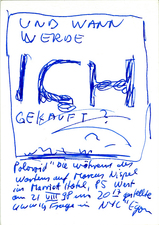 UND WANN
WERDE
ICH
GEKAUFT?
Polaroid "Die während des
Wartens auf Marcus Nispel
im Marriot Hotel, 75 West
am 21 VIII 98 um 20 gestellte
Frage in NYC" Egon